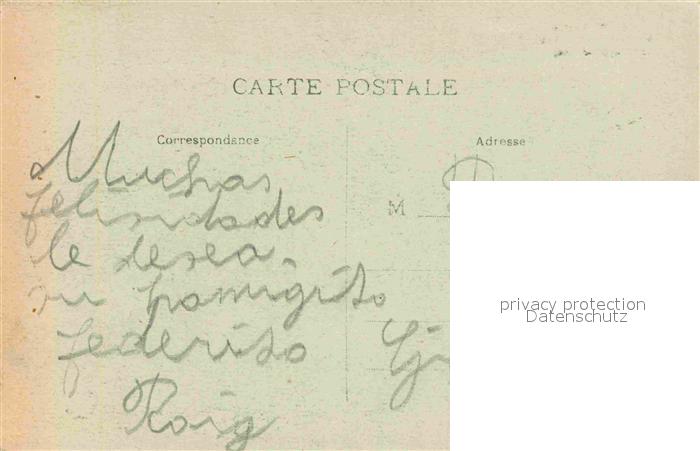 CARTE POSTALE
Correspondance
Adresse
Muchas
felisidades
le desea
su
federito
Roig
M
privacy protection
Datenschutz